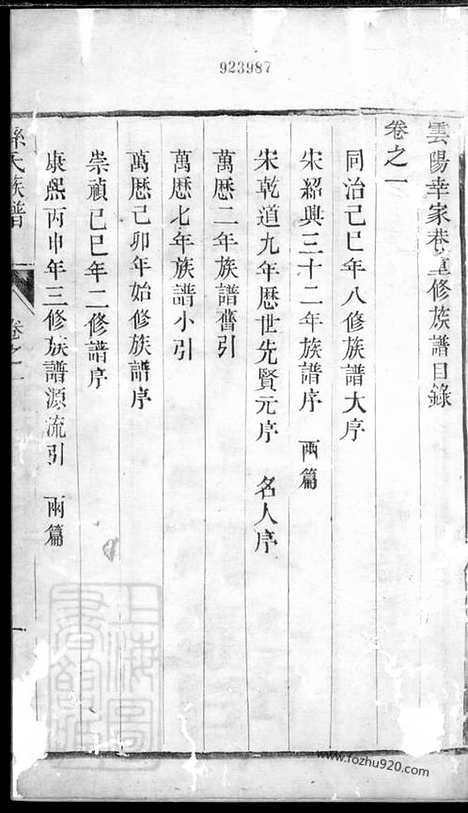 923987
雲陽幸家巷重修族譜目錄
卷之一
同治己巳年八修族譜大序
宋紹興三十二年族譜序 兩篇
宋乾道九年歷世先賢元序 名人序
萬歷二年族譜舊引
萬歷七年族譜小引
萬歷己卯年始修族譜序
崇禎己巳年二修譜序
康熙丙申年三修族譜源流引 兩篇
孫氏族譜
卷之一
上海圖書館藏
www.fozhu920.com